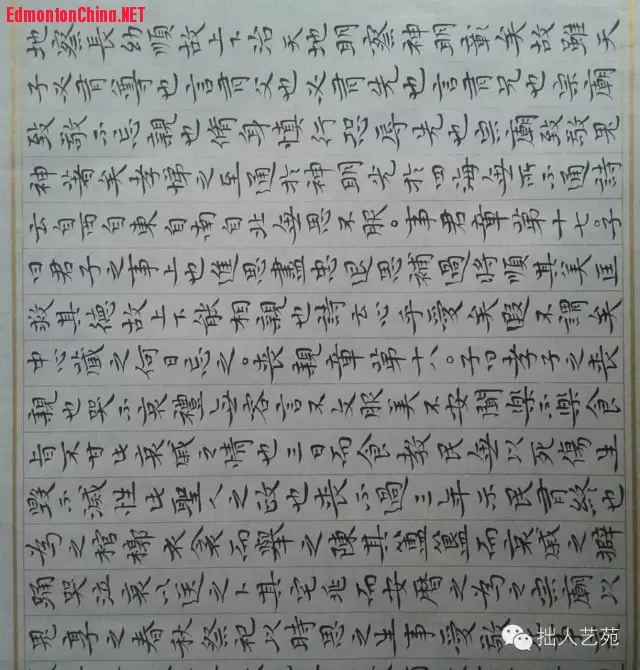 EdmontonChina.NET
地察長幼順故上下治天地明察神明彰矣故雖天
子必有尊也言有父也必有先也言有兄也宗廟
致敬不忘親也脩身慎行恐辱先也宗廟致敬鬼
神著矣孝悌之至通於神明光於四海無所不通詩
云自西自東自南自北無思不服。事君章第十七。子
曰君子之事上也進思盡忠退思補過將順其美匡
救其德故上下能相親也詩云心乎愛矣遐不謂矣
中心藏之何日忘之。喪親章第十八。子曰孝子之喪
親也哭不哀禮無容言不文服美不安聞樂不樂食
旨不甘此哀戚之情也三日而食教民無以死傷生
毀不滅性此聖人之政也喪不過三年示民有終也
為之棺槨衣衾而舉之陳其簠簋而哀戚之擗
踊哭泣哀以送之卜其宅兆而安曆之為之宗廟以
鬼享之春秋祭祀以時思之生事愛敬
拙人艺苑